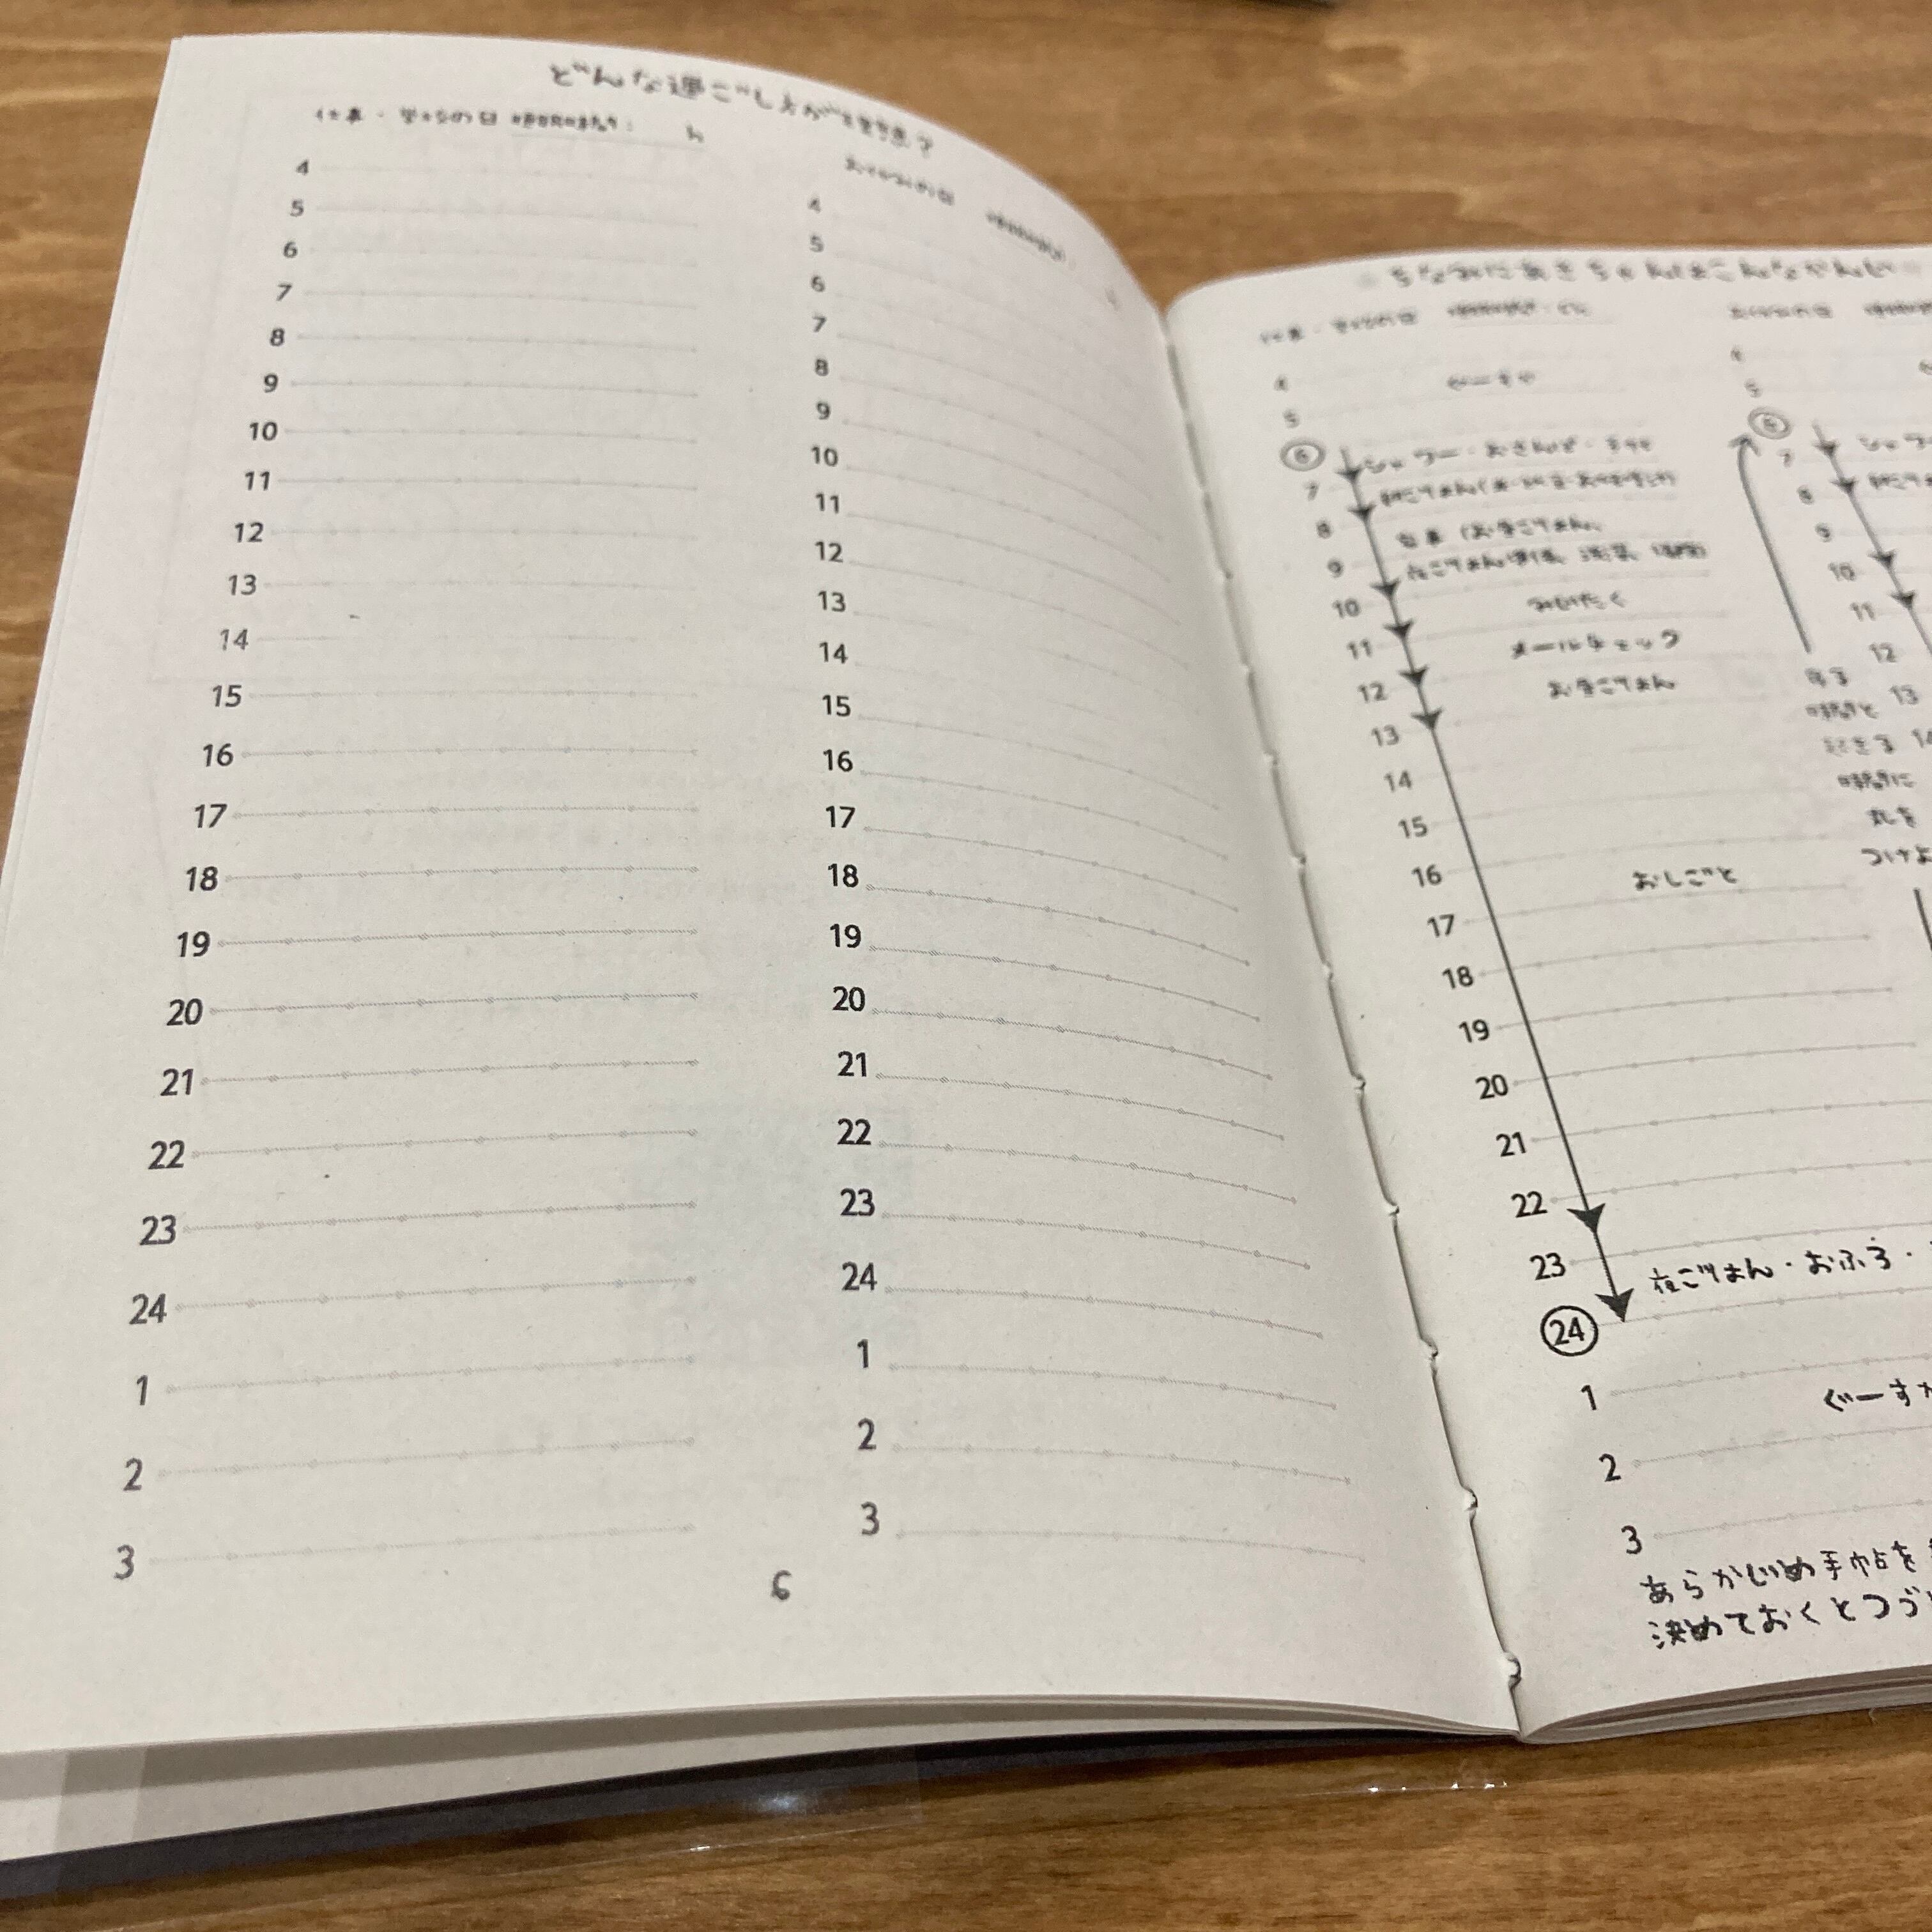 どんな過ごし方が理想?
仕事・学校の日 睡眠時間: h
4
5
6
7
8
9
10
11
12
13
14
15
16
17
18
19
20
21
22
23
24
1
2
3
おやすみの日 睡眠時間:
4
5
6
7
8
9
10
11
12
13
14
15
16
17
18
19
20
21
22
23
24
1
2
3
6
仕事・学校の日 睡眠時間:
4 ぐーすか
5
6
シャワー・おさんぽ・
7
朝ごはん
8
家事(お昼ごはん、
9 夜ごはん準備、洗濯、掃除)
10 みじたく
11 メールチェック
12 お昼ごはん
13
14
15
16 おしごと
17
18
19
20
21
22
23 夜ごはん・おふろ・
24
1 ぐーすか
2
3
あらかじめ手帖を
決めておくとつづ
おやすみの日
4
5
6
7
8
9
10
11
12
13
14
寝る
時間と
起きる
時間に
丸を
つけよ